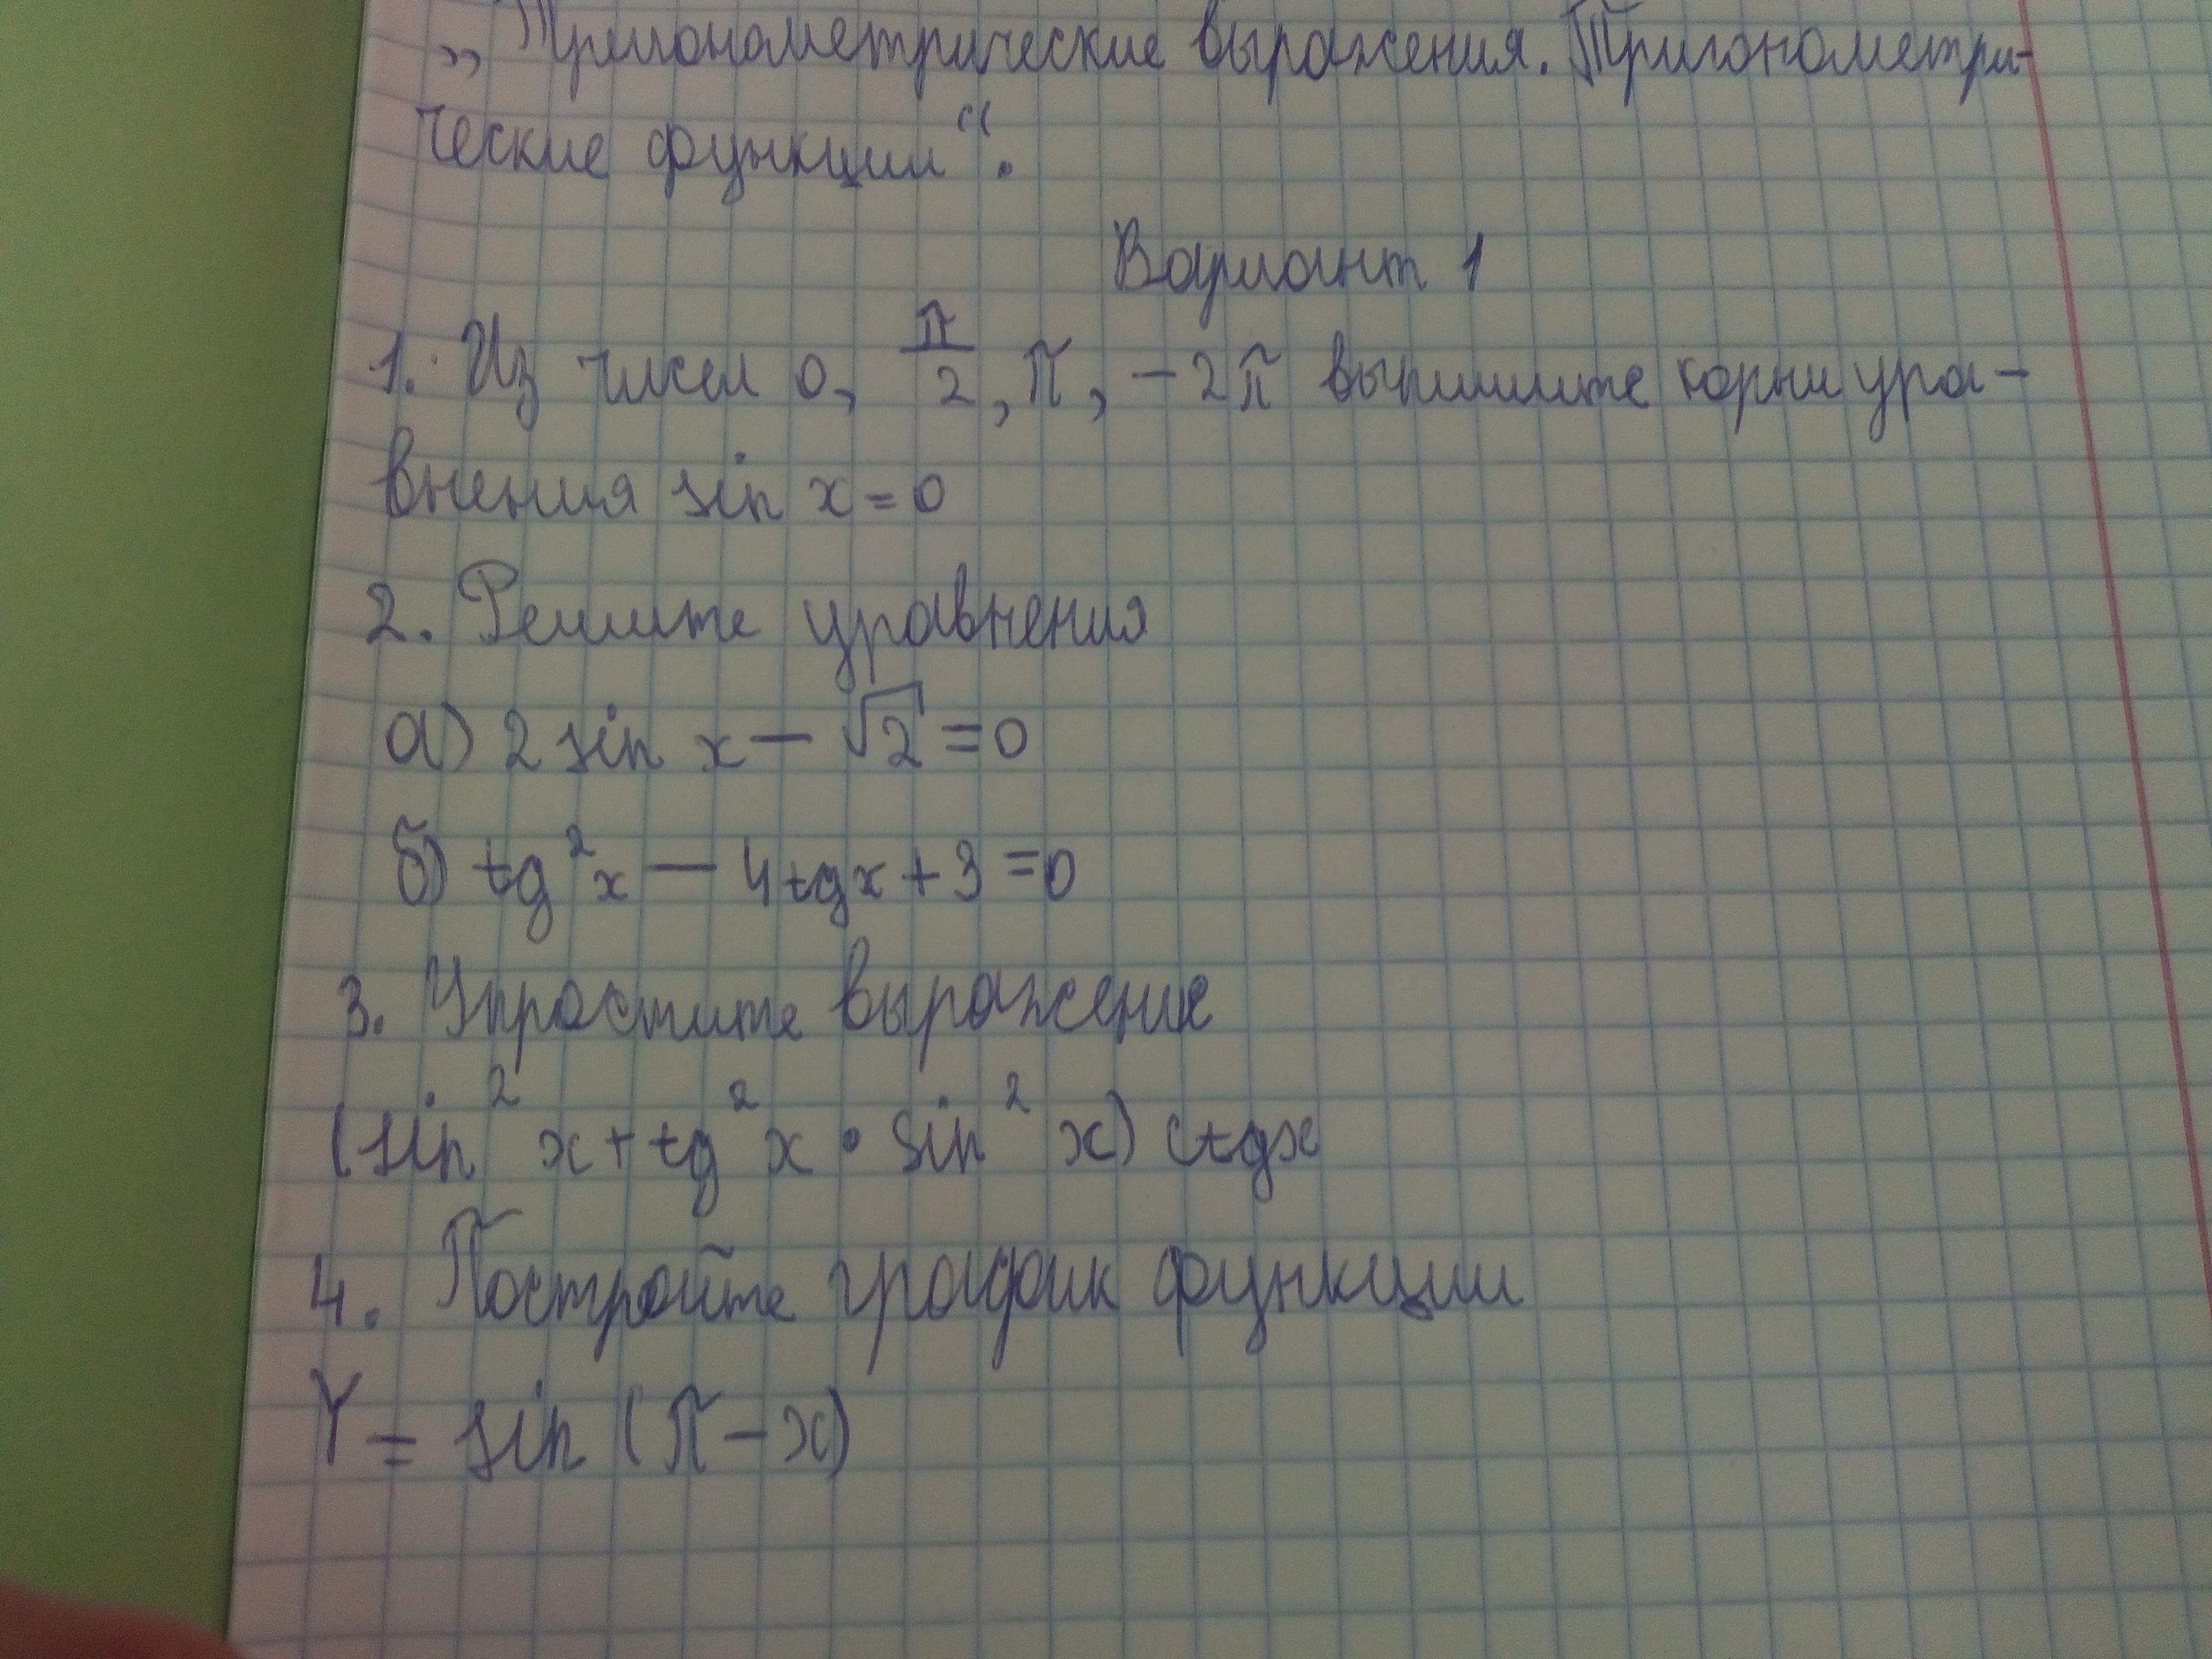 „Тригонометрические выражения. Тригонометри-
ческие функции“.
Вариант 1
1. Из чисел 0, π/2, π, -2π выпишите корни ура-
внения sin x = 0
2. Решите уравнения
а) 2 sin x - √2 = 0
б) tg²x - 4tgx + 3 = 0
3. Упростите выражение
(sin² x + tg²x • sin² x) ctgx
4. Постройте график функции
Y = sin (π - x)